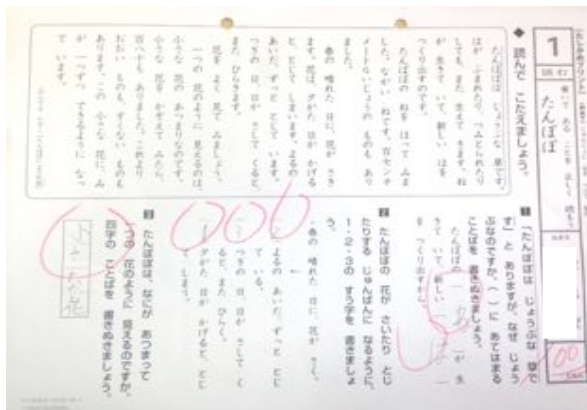 1
読む
書いて ある ことを 正しく 読もう
たんぽぽ
◆ 読んで こたえましょう。
たんぽぽは じょうぶな 草です。
はが ふまれたり、つみとられたり
しても、また 生えて きます。ね
が 生きて いて、新しい はを
つくり出すのです。
たんぽぽの ねを ほって みま
した。ながい ねです。百センチ
メートルいじょうの ものも あり
ました。
春の 晴れた 日に、花が さき
ます。花は 夕がた 日が かげる
と、とじて しまいます。よるの
あいだ、ずっと とじて います。
つぎの 日、日が さして くると、
また ひらきます。
花を よく 見て みましょう。
一つの 花のように 見えるのは、
小さな 花の あつまりなのです。
小さな 花を かぞえて みたら、
百八十も ありました。これより
おおい ものも、すくない ものも
あります。この 小さな 花に、み
が 一つずつ できるように なっ
て います。
1 「たんぽぽは じょうぶな 草で
す」と ありますが、なぜ じょう
ぶなのですか。( )に あてはまる
ことばを 書きぬきましょう。
たんぽぽの( ね )が 生
きて いて、新しい( は )
を つくり出すから。
2 たんぽぽの 花が さいたり とじ
たりする じゅんばんに なるように、
1・2・3の すう字を 書きましょ
う。
・春の 晴れた 日に、花が さく。
よるの あいだ、ずっと とじ
て いる。
つぎの 日、日が さして く
ると、また ひらく。
夕がた 日が かげると、とじ
て しまう。
3 たんぽぽは、なにが あつまって
一つの 花のように 見えるのですか。
四字の ことばを 書きぬきましょう。
小さな花
100